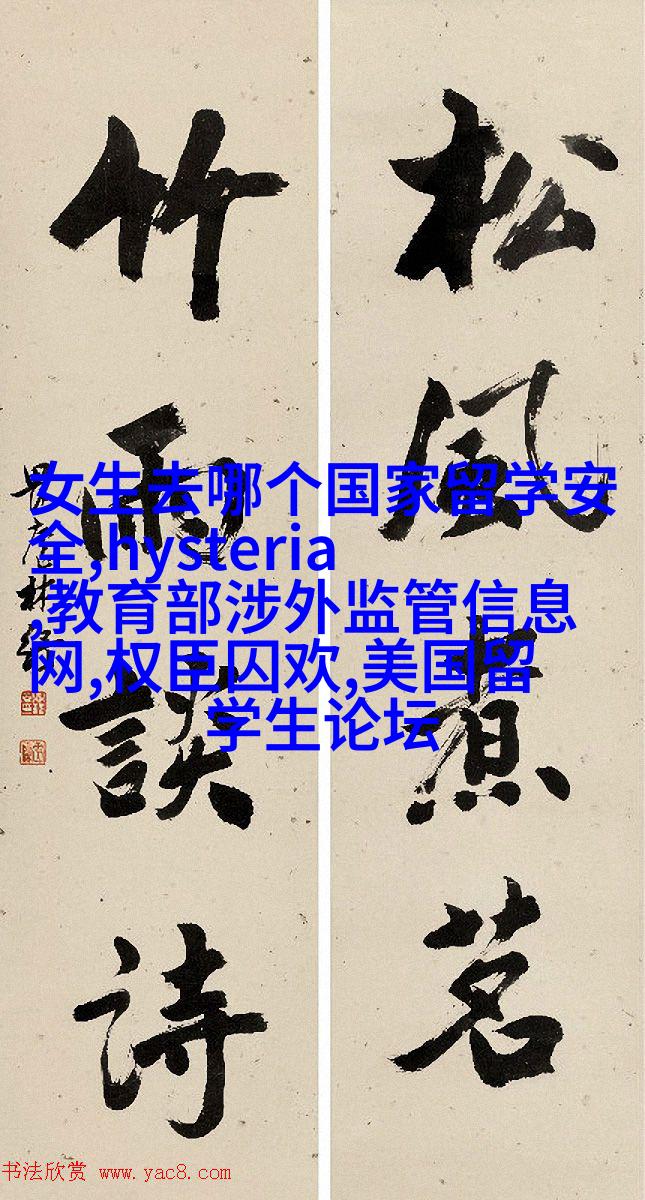 松風煮茗
竹雨談詩
女生去哪个国家留学安
全,hysteria
,教育部涉外监管信息
网,权臣囚欢,美国留
学生论坛
书法欣赏 www.yac8.com